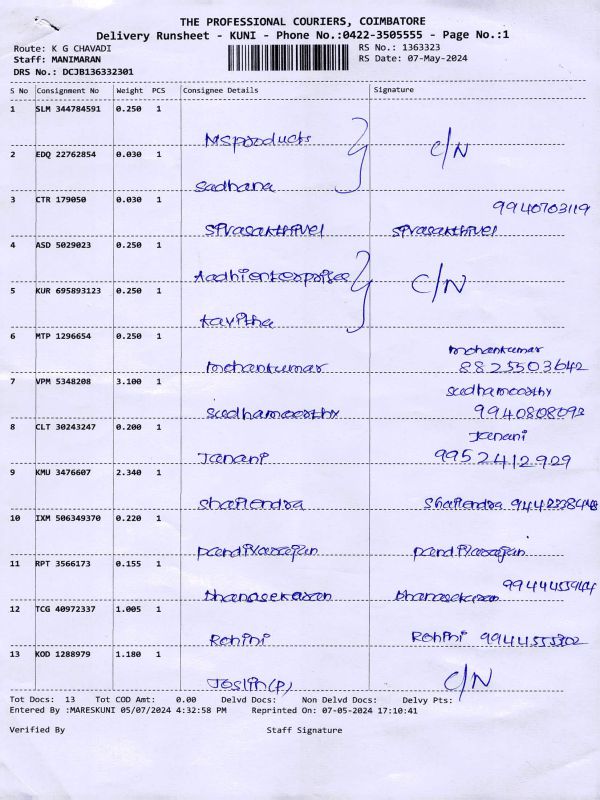 THE PROFESSIONAL COURIERS, COIMBATORE
Delivery Runsheet - KUNI - Phone No.:0422-3505555 - Page No.:1
Route: K G CHAVADI RS No.: 1363323
Staff: MANIMARAN RS Date: 07-May-2024
DRS No.: DCJB136332301
S No Consignment No Weight PCS Consignee Details Signature
1 SLM 344784591 0.250 1
MSproducts C/N
2 EDQ 22762854 0.030 1
Sadhana
3 CTR 179050 0.030 1 9940703119
Sivasakthivel Sivasakthivel
4 ASD 5029023 0.250 1
Aadhienterprises C/N
5 KUR 695893123 0.250 1
Kavitha
6 MTP 1296654 0.250 1 mohankumar
mohankumar 8825503642
7 VPM 5348208 3.100 1 sudhamoorthy
sudhamoorthy 9940808092
8 CLT 30243247 0.200 1 Janani
Janani 9952412929
9 KMU 3476607 2.340 1
Shailendra Shailendra
10 IXM 506349370 0.220 1
pandiyarajan pandiyarajan
11 RPT 3566173 0.155 1
Dhanasekaran Dhanasekaran
12 TCG 40972337 1.005 1
Rohini Rohini
13 KOD 1288979 1.180 1
Joslin(P) C/N
Tot Docs: 13 Tot COD Amt: 0.00 Delvd Docs: Non Delvd Docs: Delvy Pts:
Entered By :MARESKUNI 05/07/2024 4:32:58 PM Reprinted On: 07-05-2024 17:10:41
Verified By Staff Signature